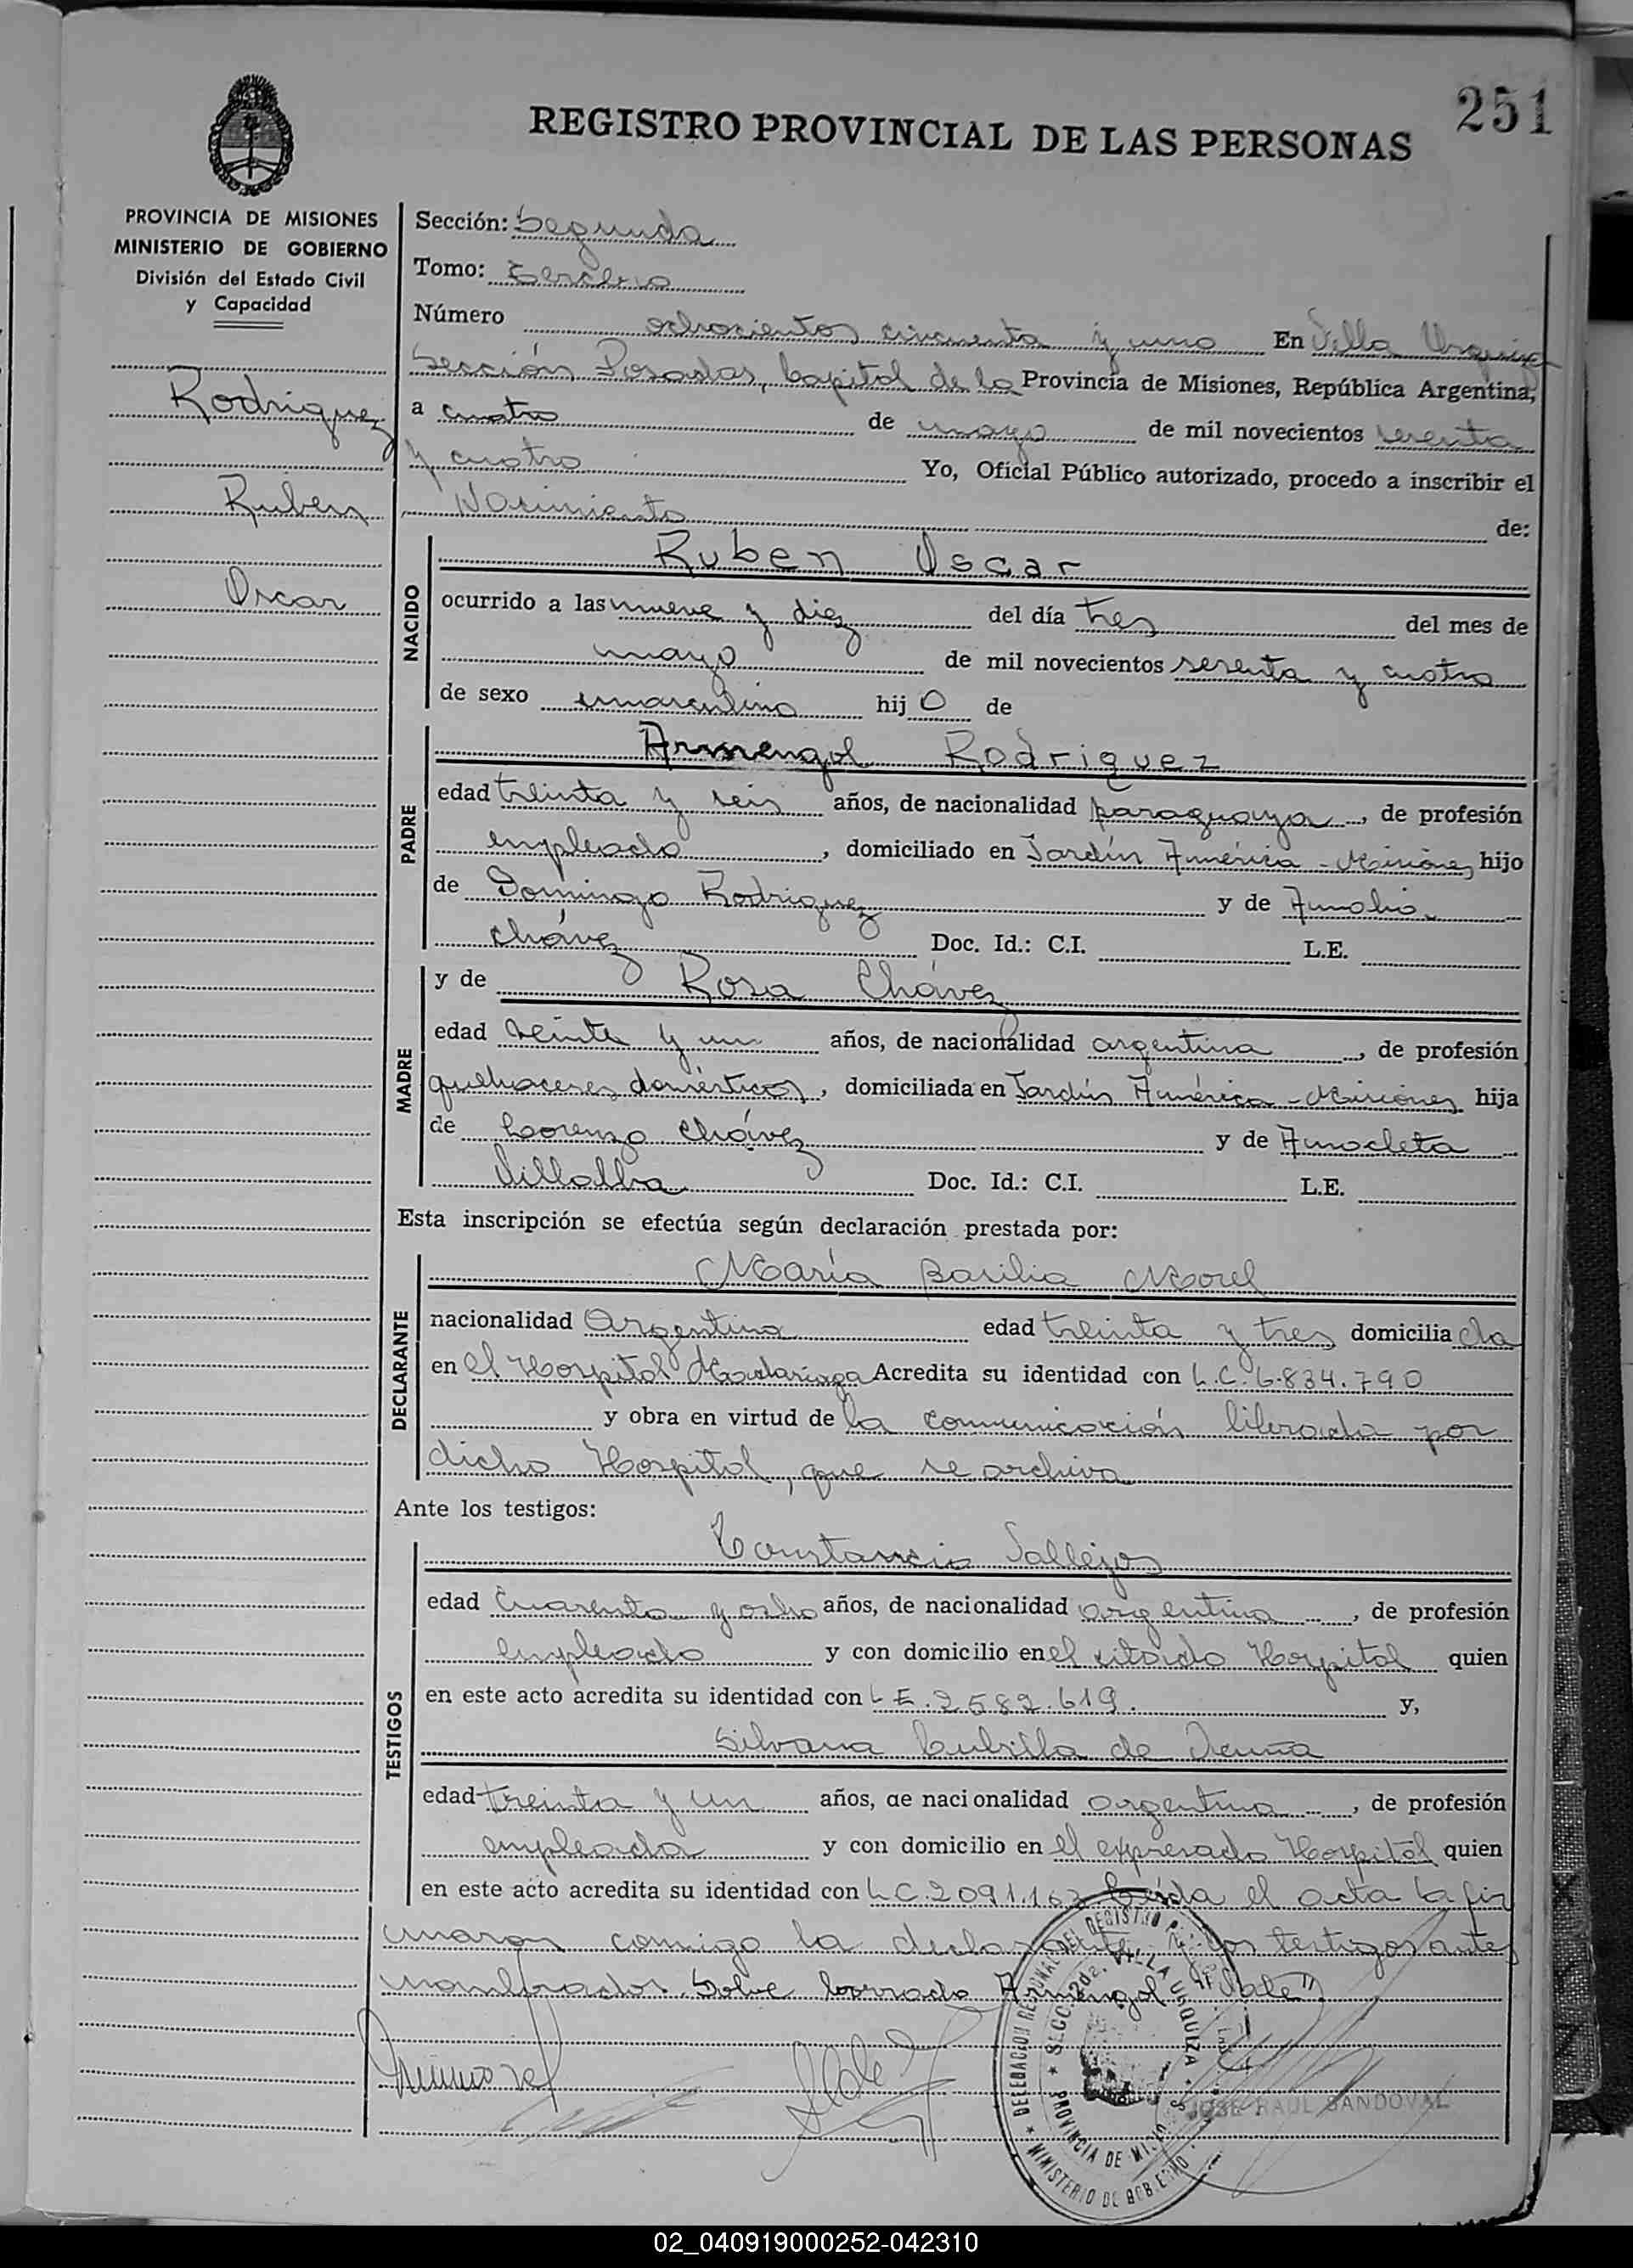 251
REGISTRO PROVINCIAL DE LAS PERSONAS
PROVINCIA DE MISIONES
MINISTERIO DE GOBIERNO
División del Estado Civil
y Capacidad
Rodriguez
Ruben
Oscar
Sección: Segunda
Tomo: Tercero
Número ochocientos cincuenta y uno En Villa Urquiza
Sección Posadas, Capital de la Provincia de Misiones, República Argentina,
a cuatro de mayo de mil novecientos sesenta
y cuatro Yo, Oficial Público autorizado, procedo a inscribir el
Nacimiento de:
NACIDO
Ruben Oscar
ocurrido a las nueve y diez del día tres del mes de
mayo de mil novecientos sesenta y cuatro
de sexo masculino hijo de
PADRE
Armengol Rodriguez
edad treinta y seis años, de nacionalidad paraguaya, de profesión
empleado, domiciliado en Jardín América - Misiones, hijo
de Domingo Rodriguez y de Amalia
Chávez Doc. Id.: C.I. L.E.
MADRE
y de Rosa Chávez
edad veinte y un años, de nacionalidad argentina, de profesión
quehaceres domésticos, domiciliada en Jardín América - Misiones hija
de Lorenzo Chávez y de Anacleta
Villalba Doc. Id.: C.I. L.E.
Esta inscripción se efectúa según declaración prestada por:
DECLARANTE
María Basilia Morel
nacionalidad Argentina edad treinta y tres domiciliada
en el Hospital Madariaga Acredita su identidad con L.C. 6.834.790
y obra en virtud de la comunicación librada por
dicho Hospital, que se archiva
Ante los testigos:
TESTIGOS
Constancio Vallejos
edad Cuarenta y ocho años, de nacionalidad argentina, de profesión
empleado y con domicilio en el citado Hospital quien
en este acto acredita su identidad con L.E. 2.582.619. y,
Silvana Cubilla de Acuña
edad treinta y un años, de nacionalidad argentina, de profesión
empleada y con domicilio en el expresado Hospital quien
en este acto acredita su identidad con L.C. 2.091.163 Leída el acta la fir
maron comigo la declarante y los testigos antes
nombrados. Sobre borrado Armengol "Vale"
DELEGACION REGIONAL DEL REGISTRO
SECC. 2da. VILLA URQUIZA
PROVINCIA DE MISIONES
MINISTERIO DE GOBIERNO
JOSE RAUL SANDOVAL
02_040919000252-042310